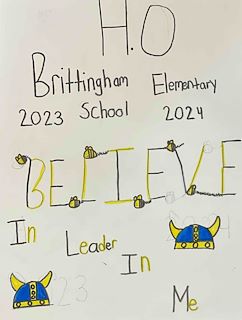 H.O
Brittingham Elementary
2023 School 2024
BELIEVE
In Leader
In
Me